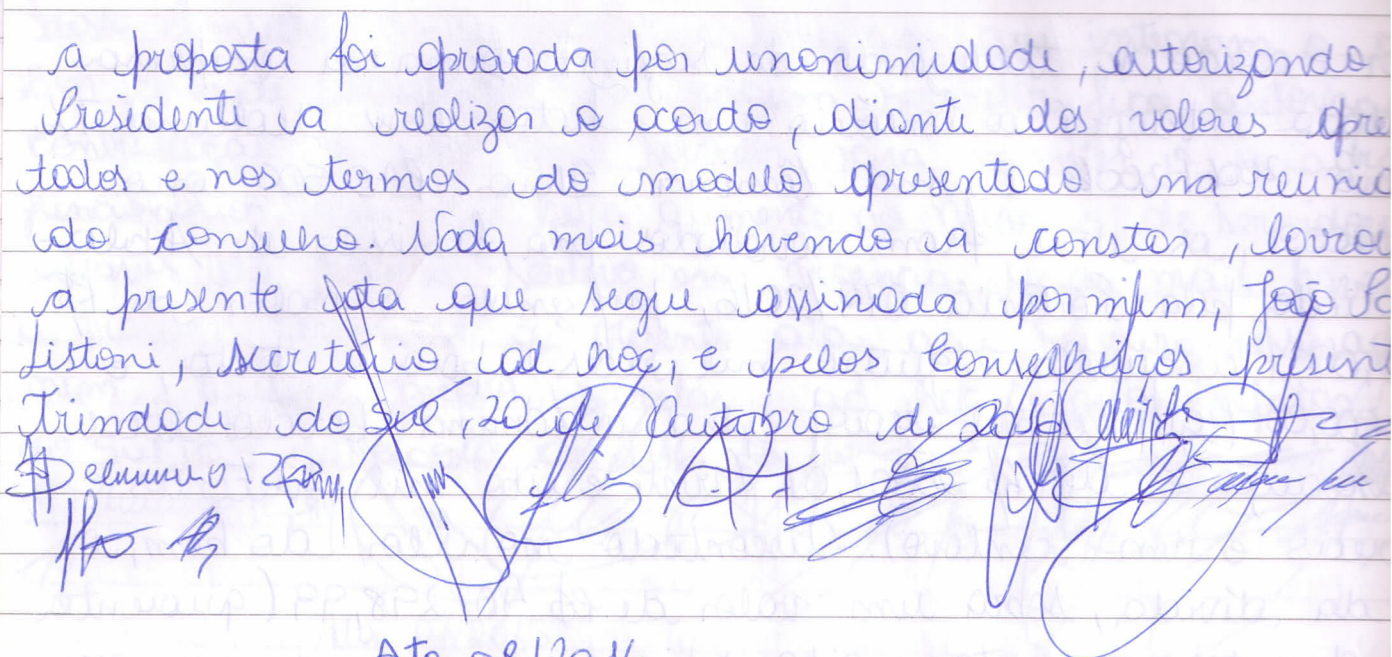 a proposta foi aprovada por unanimidade, autorizando
Presidente a realizar o acordo, diante dos valores apre
tados e nos termos do modelo apresentado na reuniã
do conselho. Nada mais havendo a constar, lavro
a presente ata que segue assinada por mim, João
Listoni, secretário ad hoc, e pelos Conselheiros present
Trindade do Sul, 20 de Outubro de 2016
Ata 08/2016